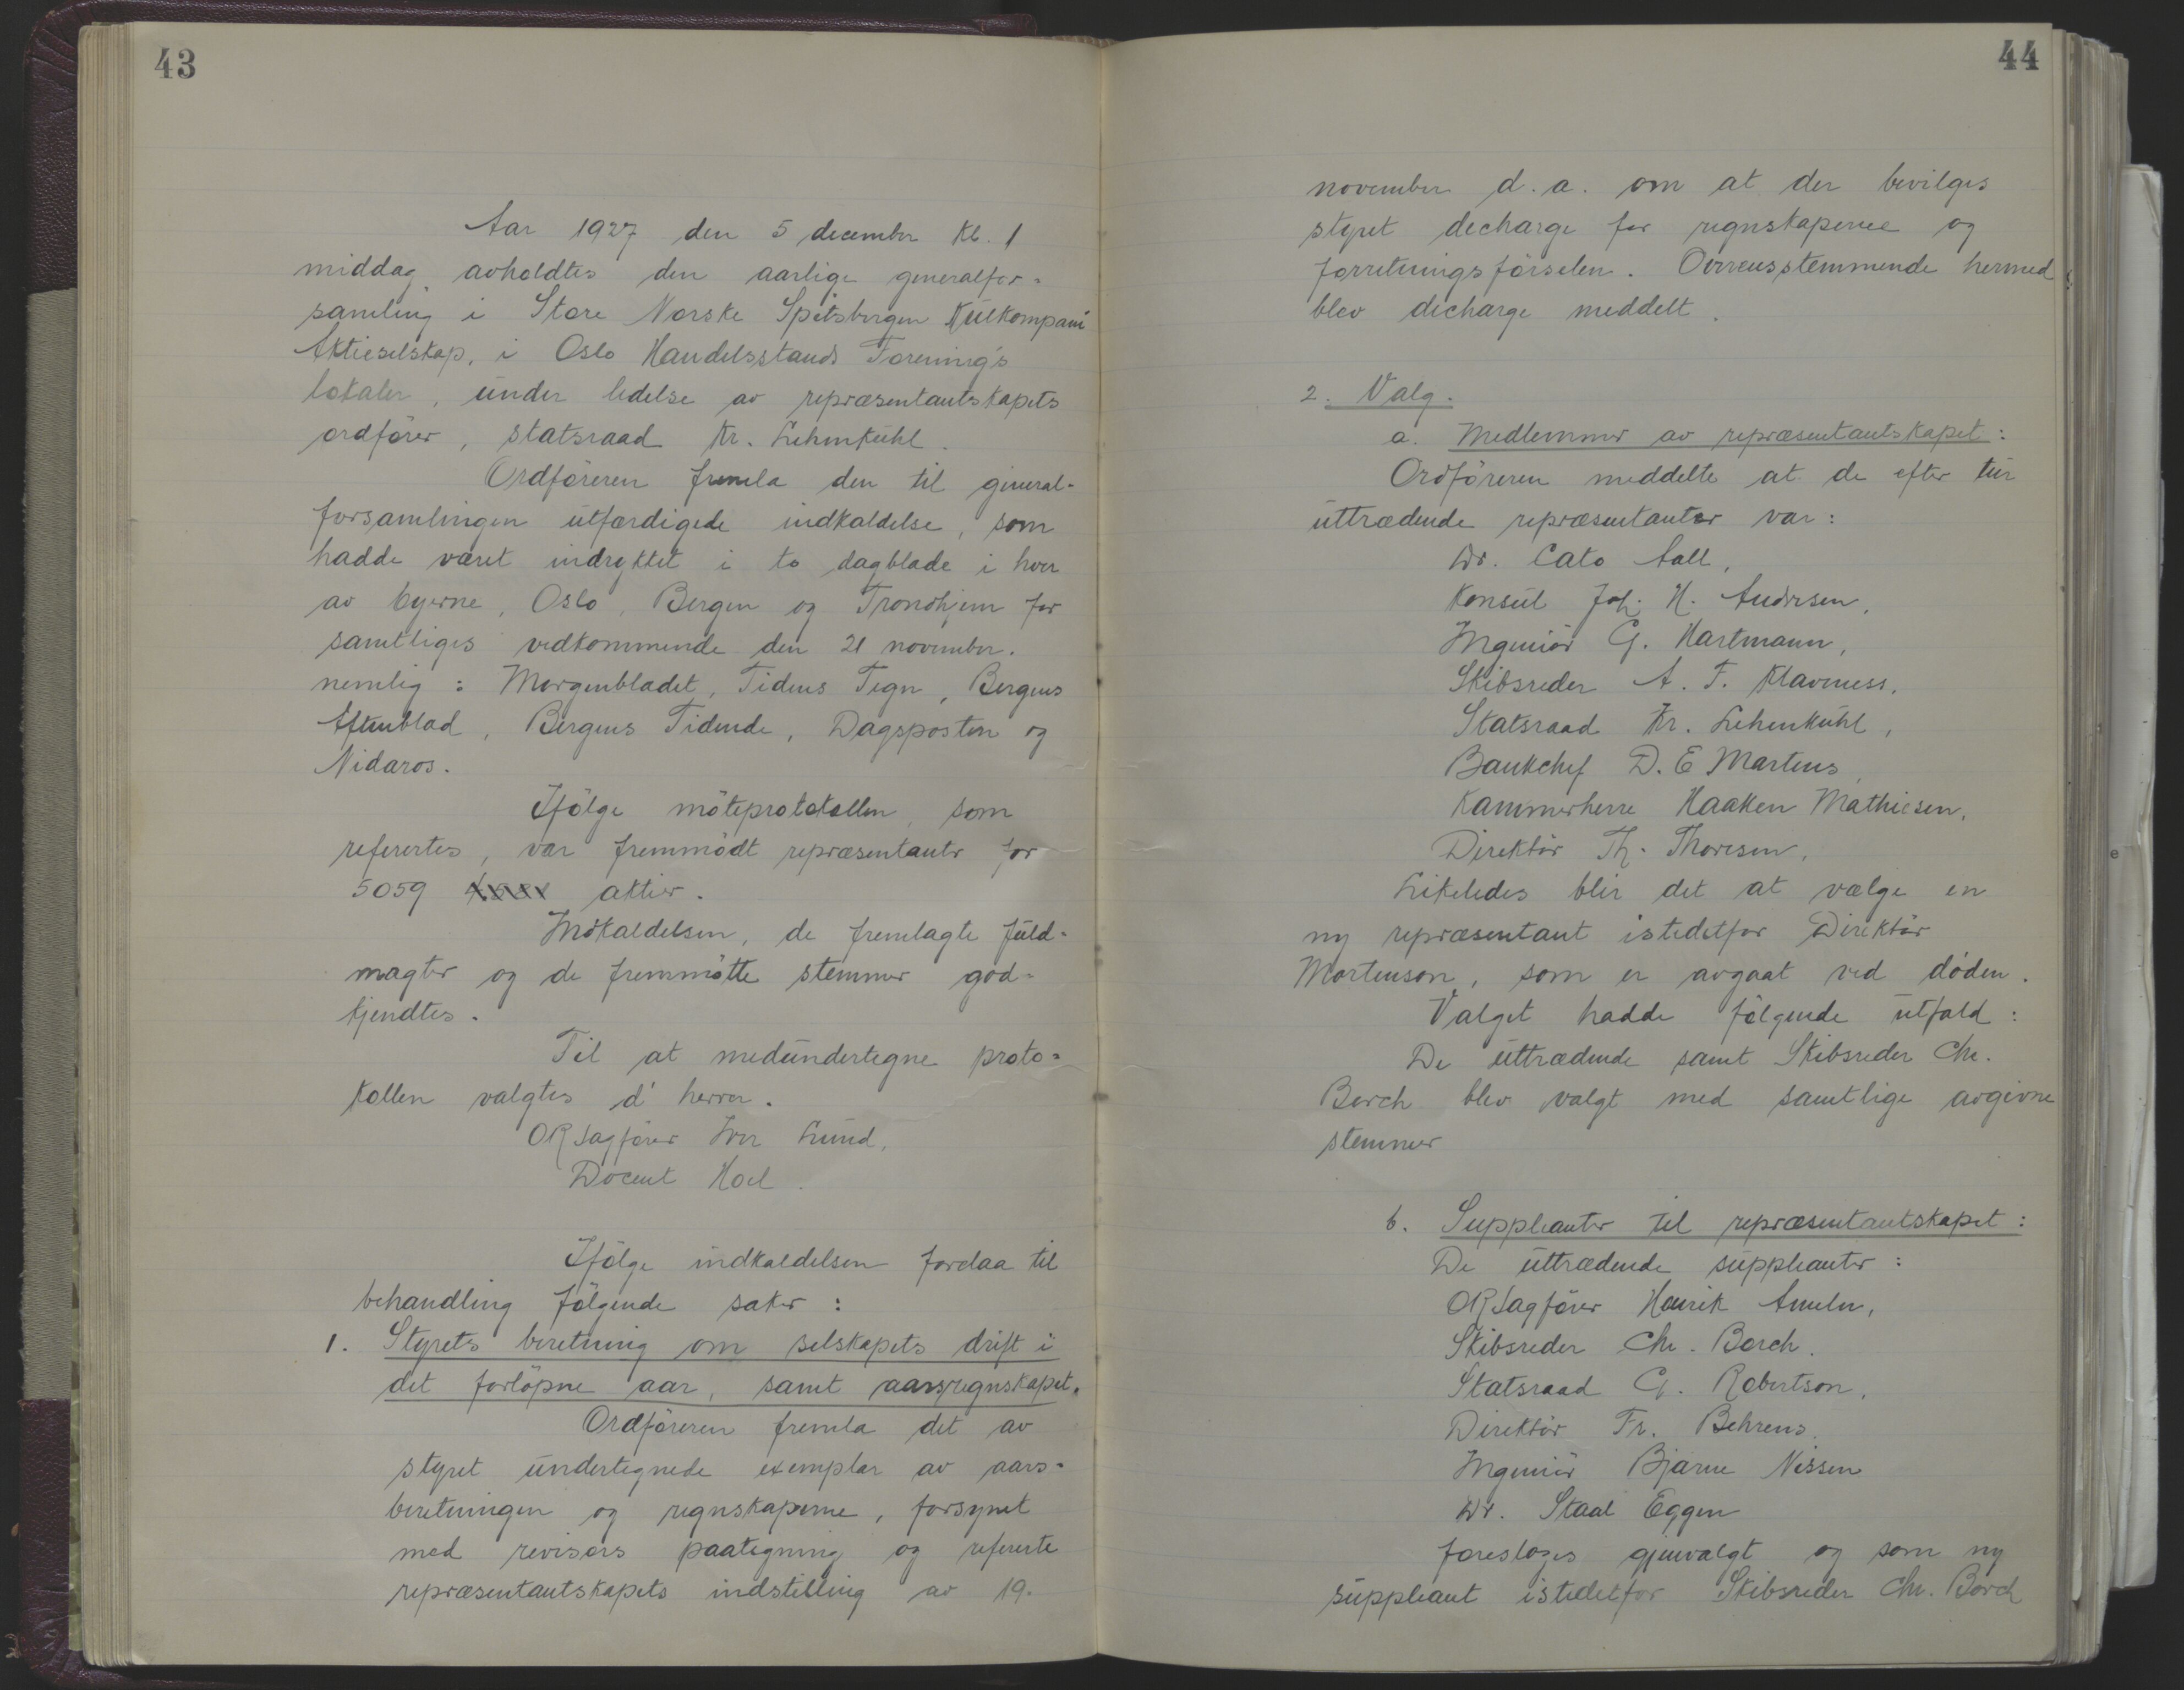 43
Aar 1927 den 5 december kl. 1
middag avholdtes den aarlige generalfor-
samling i Store Norske Spitsbergen Kulkompani
Aktieselskap, i Oslo Handelsstands Forening's
lokaler, under ledelse av repræsentantskapets
ordfører, statsraad Kr. Lehmkuhl.
Ordföreren fremla den til general-
forsamlingen utfærdigede indkaldelse, som
hadde været indrykket i to dagblade i hver
av byerne, Oslo, Bergen og Trondhjem for
samtliges vedkommende den 21 november.
nemlig: Morgenbladet, Tidens Tegn, Bergens
Aftenblad, Bergens Tidende, Dagsposten og
Nidaros.
Ifölge möteprotokollen, som
referertes, var fremmödt repræsentanter for
5059 aktier.
Indkaldelsen, de fremlagte fuld-
magter og de fremmötte stemmer god-
kjendtes.
Til at medundertegne proto-
kollen valgtes d' herrer.
ORsagförer Iver Lund,
Docent Hoel.
Ifölge indkaldelsen forelaa til
behandling fölgende saker:
1. Styrets beretning om selskapets drift i
det forlöpne aar, samt aarsregnskapet.
Ordföreren fremla det av
styret undertegnede exemplar av aars-
beretningen og regnskaperne, forsynet
med revisors paategning og refererte
repræsentantskapets indstilling av 19.
44
november d.a. om at der bevilges
styret decharge for regnskaperne og
forretningsförselen. Overensstemmende hermed
blev decharge meddelt.
2. Valg.
a. Medlemmer av repræsentantskapet:
Ordföreren meddelte at de efter tur
uttrædende repræsentanter var:
Dr. Cato Aall,
Konsul Joh. H. Andresen,
Ingeniör G. Hartmann,
Skibsreder A. F. Klaveness,
Statsraad Kr. Lehmkuhl,
Bankchef D. E Martens,
Kammerherre Haaken Mathiesen,
Direktör Th. Thoresen,
Likeledes blir det at vælge en
ny repræsentant istedetfor Direktör
Mortenson, som er avgaat ved döden.
Valget hadde fölgende utfald:
De uttrædende samt Skibsreder Chr.
Borch blev valgt med samtlige avgivne
stemmer
b. Suppleanter til repræsentantskapet:
De uttrædende suppleanter:
ORsagförer Henrik Ameln,
Skibsreder Chr. Borch.
Statsraad G. Robertson,
Direktör Fr. Behrens.
Ingeniör Bjarne Nissen
Dr. Staal Eggen
foresloges gjenvalgt og som ny
suppleant istedetfor Skibsreder Chr. Borch